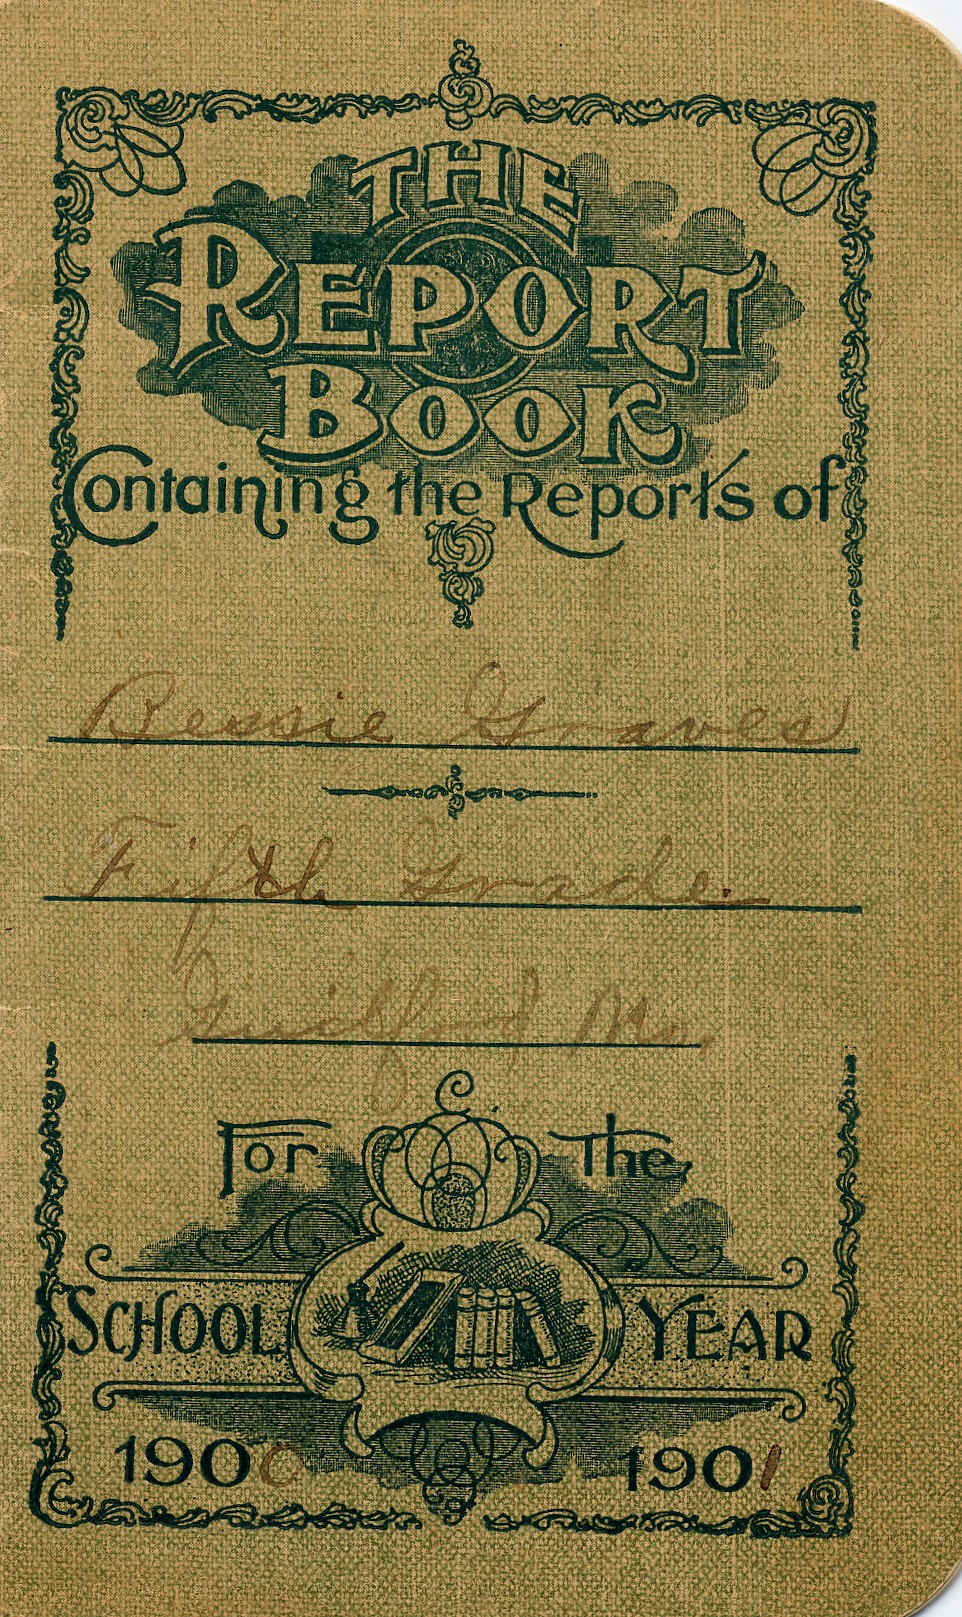 THE
REPORT
BOOK
Containing the Reports of
Bessie Graves
Fifth Grade.
Guilford M.
For The
SCHOOL YEAR
1900 1901